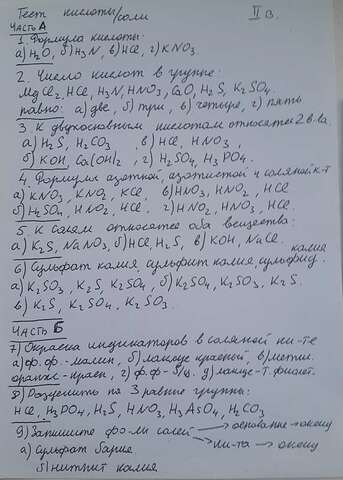 Тест кислоты/соли II в.
Часть А
1. Формула кислоты:
а) H2O, б) H3N, в) HCl, г) KNO3.
2. Число кислот в группе:
MgCl2, HCl, H3N, HNO3, CaO, H2S, K2SO4.
равно: а) две, б) три, в) четыре, г) пять
3. К двухосновным кислотам относятся 2 в-ва
а) H2S, H2CO3, в) HCl, HNO3,
б) KOH, Ca(OH)2, г) H2SO4, H3PO4.
4. Формула азотной, азотистой и соляной к-т
а) KNO3, KNO2, KCl, в) HNO3, HNO2, HCl
б) H2SO4, HNO2, HCl, г) HNO2, HNO3, HCl.
5. К солям относятся оба вещества:
а) K2S, NaNO3, б) HCl, H2S, в) KOH, NaCl.
6) Сульфат калия, сульфит калия, сульфид калия
а) K2SO3, K2S, K2SO4, б) K2SO4, K2SO3, K2S.
в) K2S, K2SO4, K2SO3.
Часть Б
7) Окраска индикаторов в соляной ки-те
а) ф.ф.-малин, б) лакмус красный, в) метил.
оранж-красн, г) ф.ф-б/ц, д) лакмус-т.фиолет.
8) Разделить на 3 равные группы:
HCl, H3PO4, H2S, HNO3, H3AsO4, H2CO3
9) Запишите фо-лы солей → основание → оксид
а) Сульфат бария → ки-та → оксид
б) нитрит калия